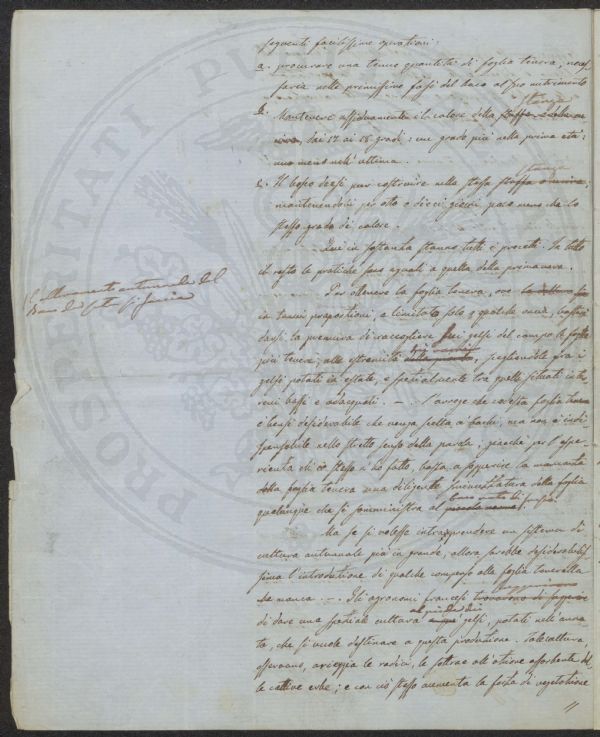 seguenti facilissime operazioni:
a. procurare una tenue quantità di foglia tenera, neces
saria nelle primissime fasi del baco al suo nutrimento
stanza
b. Mantenere assiduamente il calore della
dai 17 ai 18 gradi: un grado più nella prima età:
uno meno nell'ultima.
stanza
c. Il bosco deesi pur costruire nella stessa
mantenendolo per otto o dieci giorni poco meno che lo
stesso grado di calore.
Qui in sostanza stanno tutti i precetti. In tutto
il resto le pratiche sono eguali a quelle della primavera.
Per ottenere la foglia tenera, ove
in tenui proporzioni, e limitata solo a qualche oncia, basta
darsi la premura di raccogliere dai gelsi del campo le foglie
più tenere, alle estremità scegliendole fra i
gelsi potati in estate, e specialmente tra quelli situati in ter
reni bassi e adacquati. - S'avvege che codesta foglia tenera
è bensì desiderabile che venga scelta ai bachi, ma non è indi
spensabile nello stretto senso della parola; giacché, per l'espe
rienza ch'io stesso n'ho fatto, basta a sopperire la mancanza
della foglia tenera una diligente sminuzzatura della foglia
qualunque che si somministra al
Ma se si volesse intraprendere un sistema di
cultura autunnale più in grande, allora sarebbe desiderabilis
sima l'introduzione di qualche compenso alla foglia tenerella
che manca. - Gli agronomi francesi
al piede dei
di dare una speciale cultura gelsi, potati nell'anna
ta, che si vuole destinare a questa produzione. Tale cultura,
osservano, arieggia le radici, le sottrae all'azione assorbente del
le cattive erbe; e con ciò stesso aumenta la forza di vegetazione
L'allevamento autunnale del
PROSPERITATI